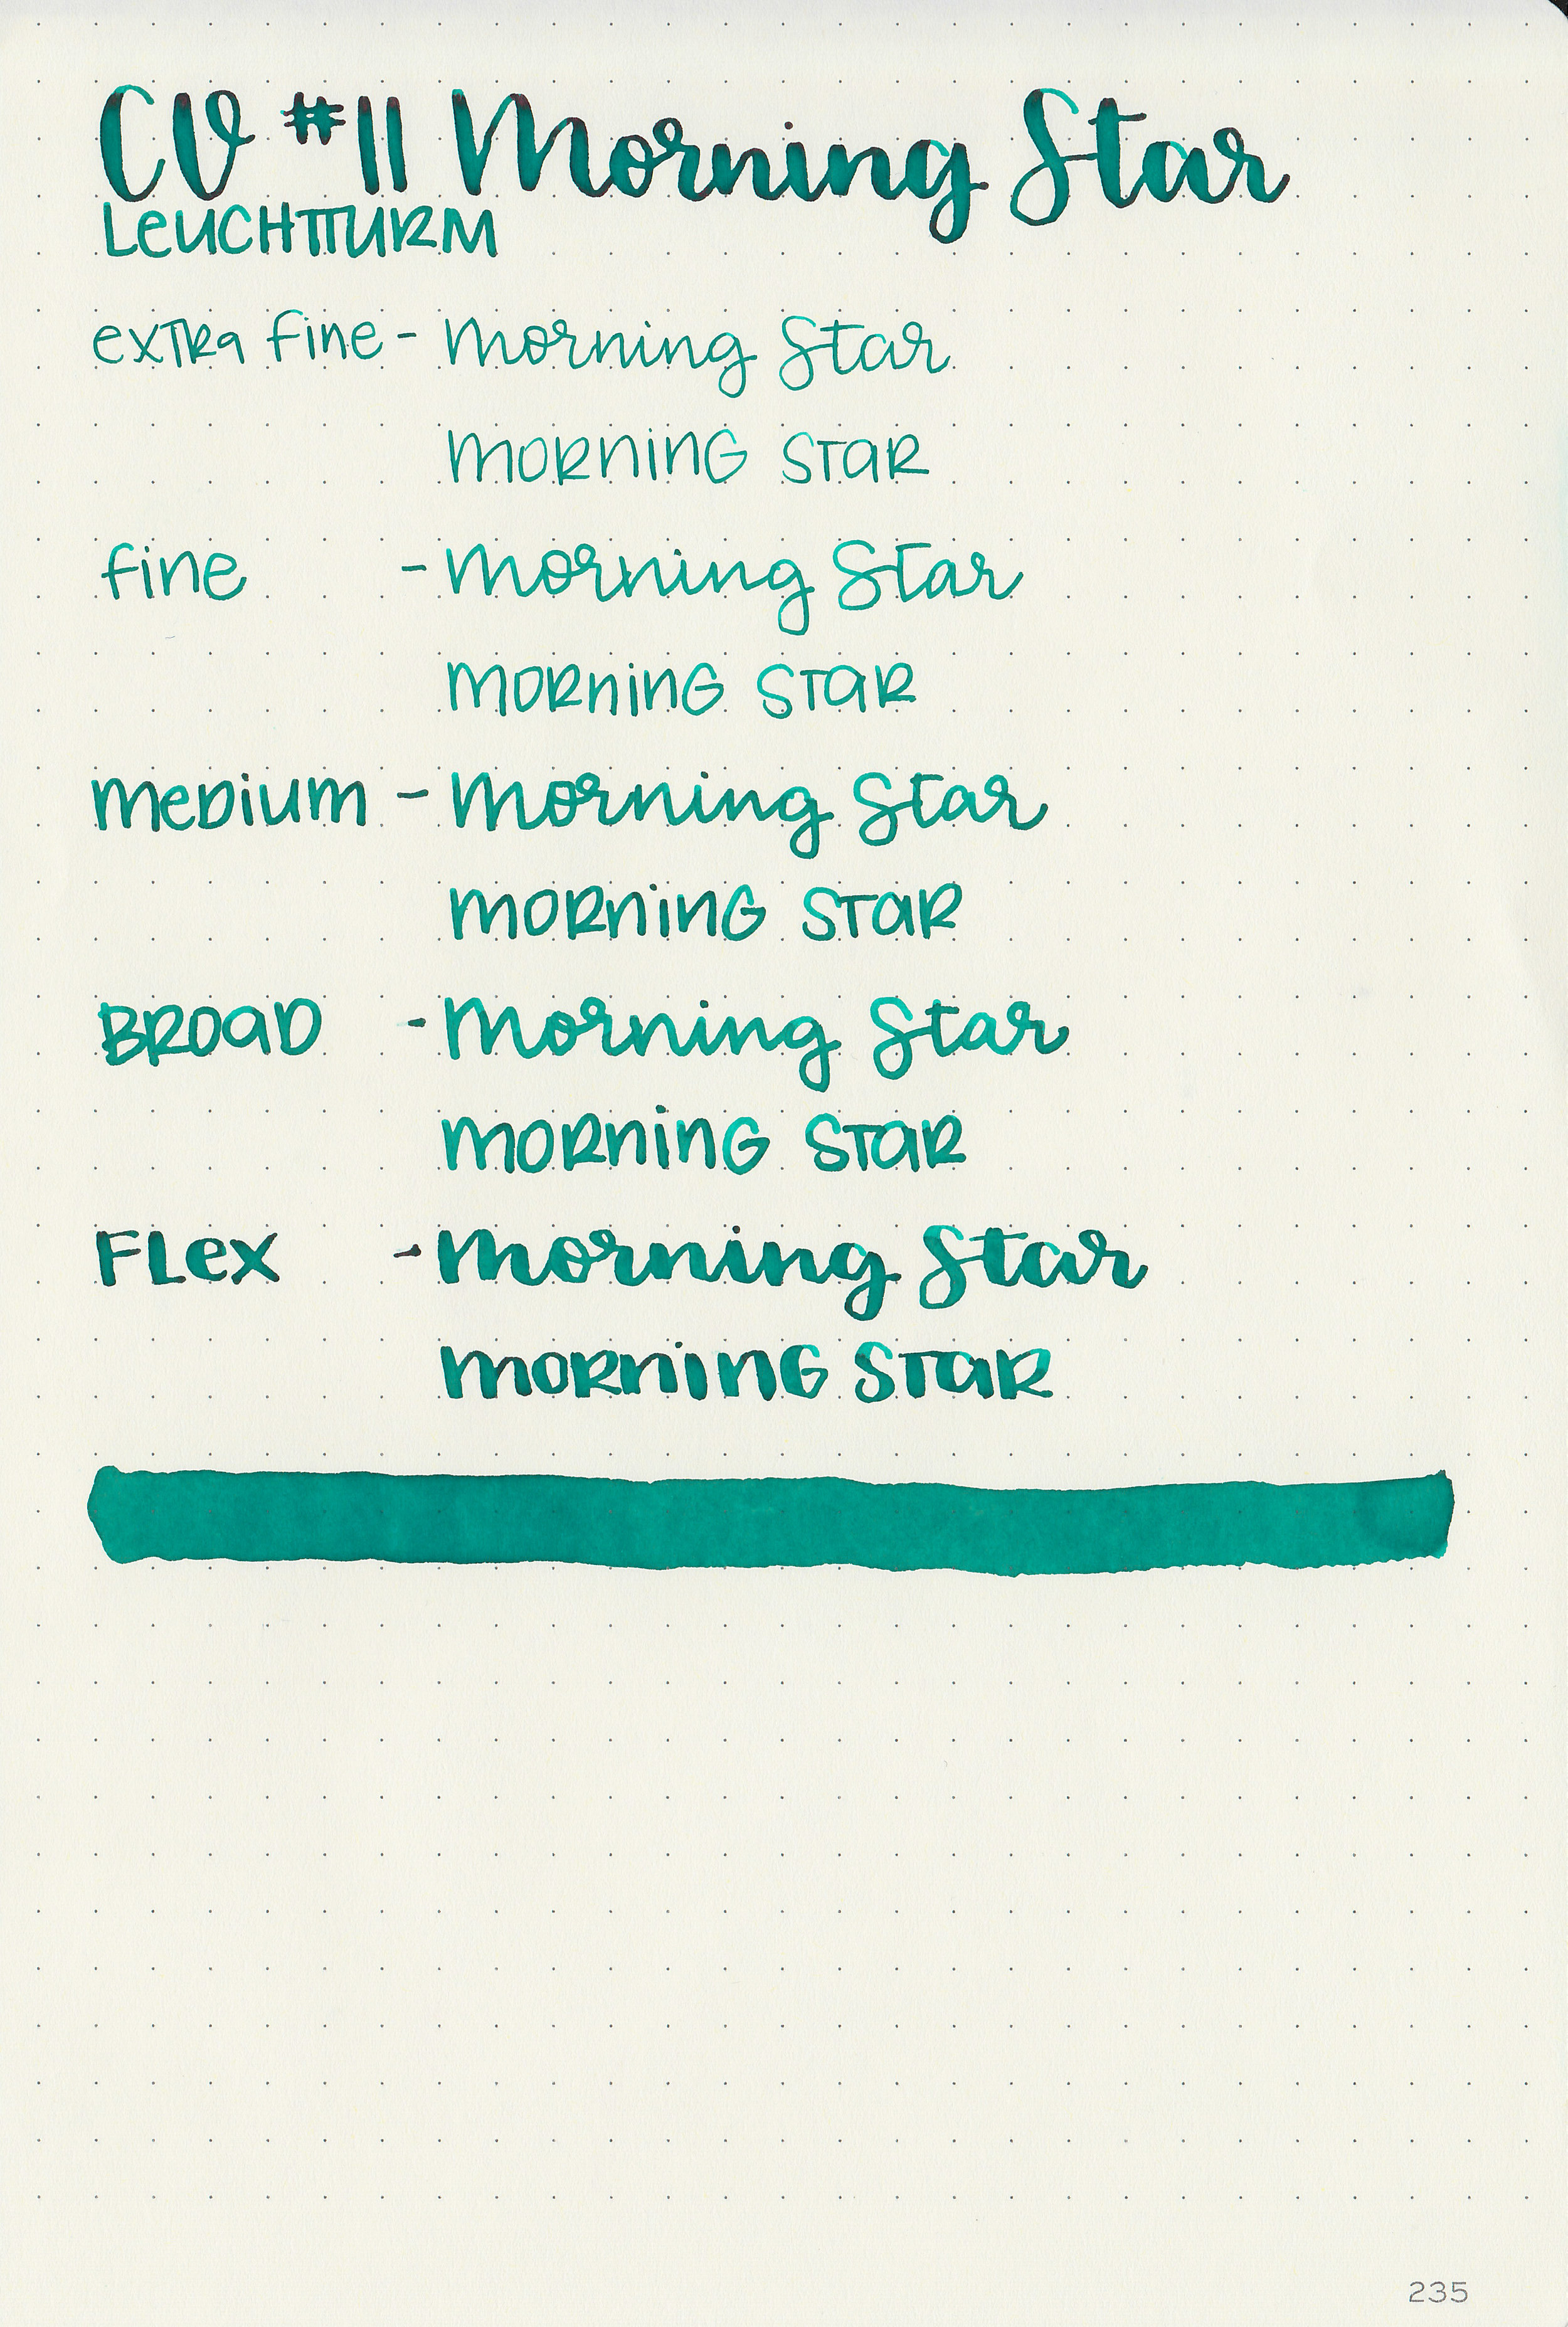 CV #11 Morning Star
LeUCHTTURM
exTRa fine - Morning Star
MORninG STaR
fine - Morning Star
MORninG STaR
MeDium - Morning Star
MORninG STaR
BROaD - Morning Star
MORninG STaR
FLex - Morning Star
MORninG STaR
235